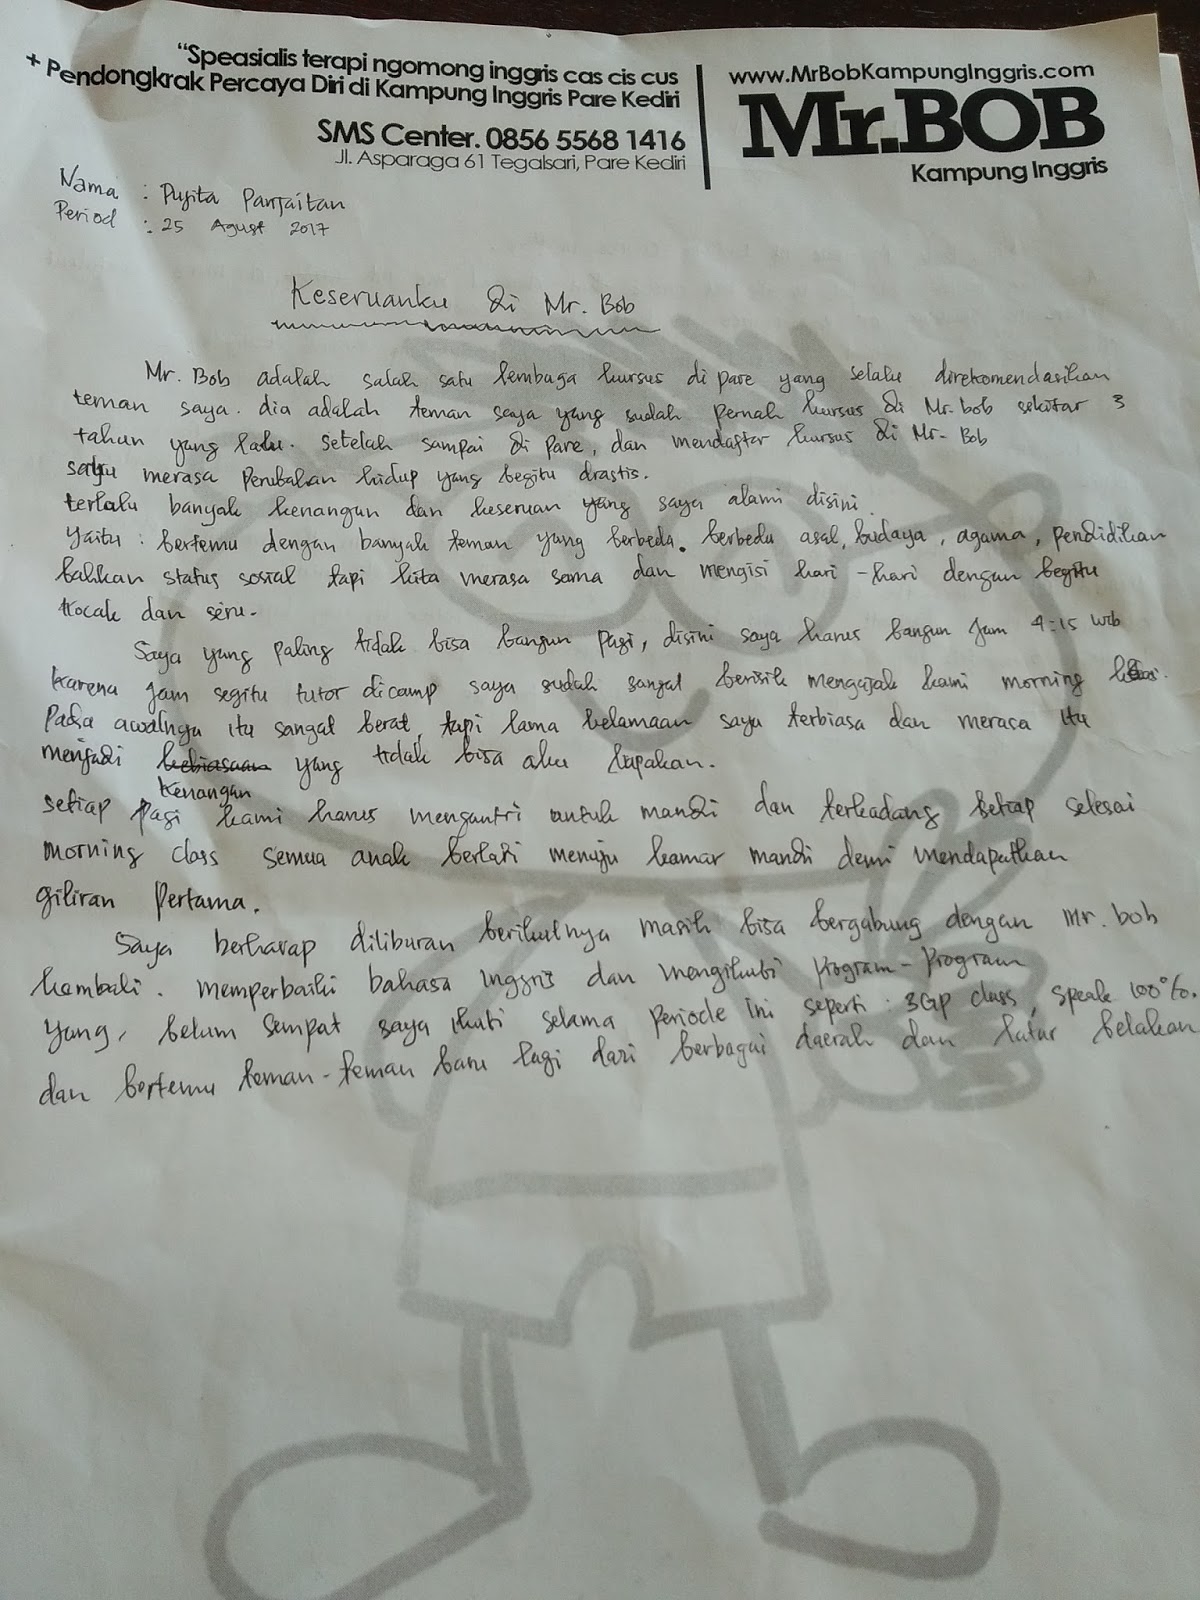 "Speasialis terapi ngomong inggris cas cis cus
+ Pendongkrak Percaya Diri di Kampung Inggris Pare Kediri
SMS Center. 0856 5568 1416
Jl. Asparaga 61 Tegalsari, Pare Kediri
www.MrBobKampungInggris.com
Mr.BOB
Kampung Inggris
Nama : Pujita Panjaitan
Period : 25 Agust 2017
Keseruanku di Mr. Bob
Mr. Bob adalah salah satu lembaga kursus di pare yang selalu direkomendasikan
teman saya. dia adalah teman saya yang sudah pernah kursus di Mr. bob sekitar 3
tahun yang lalu. setelah sampai di pare, dan mendaftar kursus di Mr. Bob
saya merasa perubahan hidup yang begitu drastis.
terlalu banyak kenangan dan keseruan yang saya alami disini.
Yaitu : bertemu dengan banyak teman yang berbeda. berbeda asal, budaya, agama, pendidikan
bahkan status sosial tapi kita merasa sama dan mengisi hari - hari dengan begitu
kocak dan seru.
Saya yang paling tidak bisa bangun pagi, disini saya harus bangun jam 4:15 wib
karena jam segitu tutor dicamp saya sudah sangat berisik mengajak kami morning
Pada awalnya itu sangat berat, tapi lama kelamaan saya terbiasa dan merasa itu
menjadi kebiasaan yang tidak bisa aku lupakan.
kenangan
setiap pagi kami harus mengantri untuk mandi dan terkadang setiap selesai
morning class semua anak berlari menuju kamar mandi demi mendapatkan
giliran pertama.
Saya berharap diliburan berikutnya masih bisa bergabung dengan Mr. bob
kembali. memperbaiki bahasa inggris dan mengikuti program - program
yang, belum sempat saya ikuti selama periode ini seperti : 3Gp class, speak 100%.
dan bertemu teman - teman baru lagi dari berbagai daerah dan latar belakan